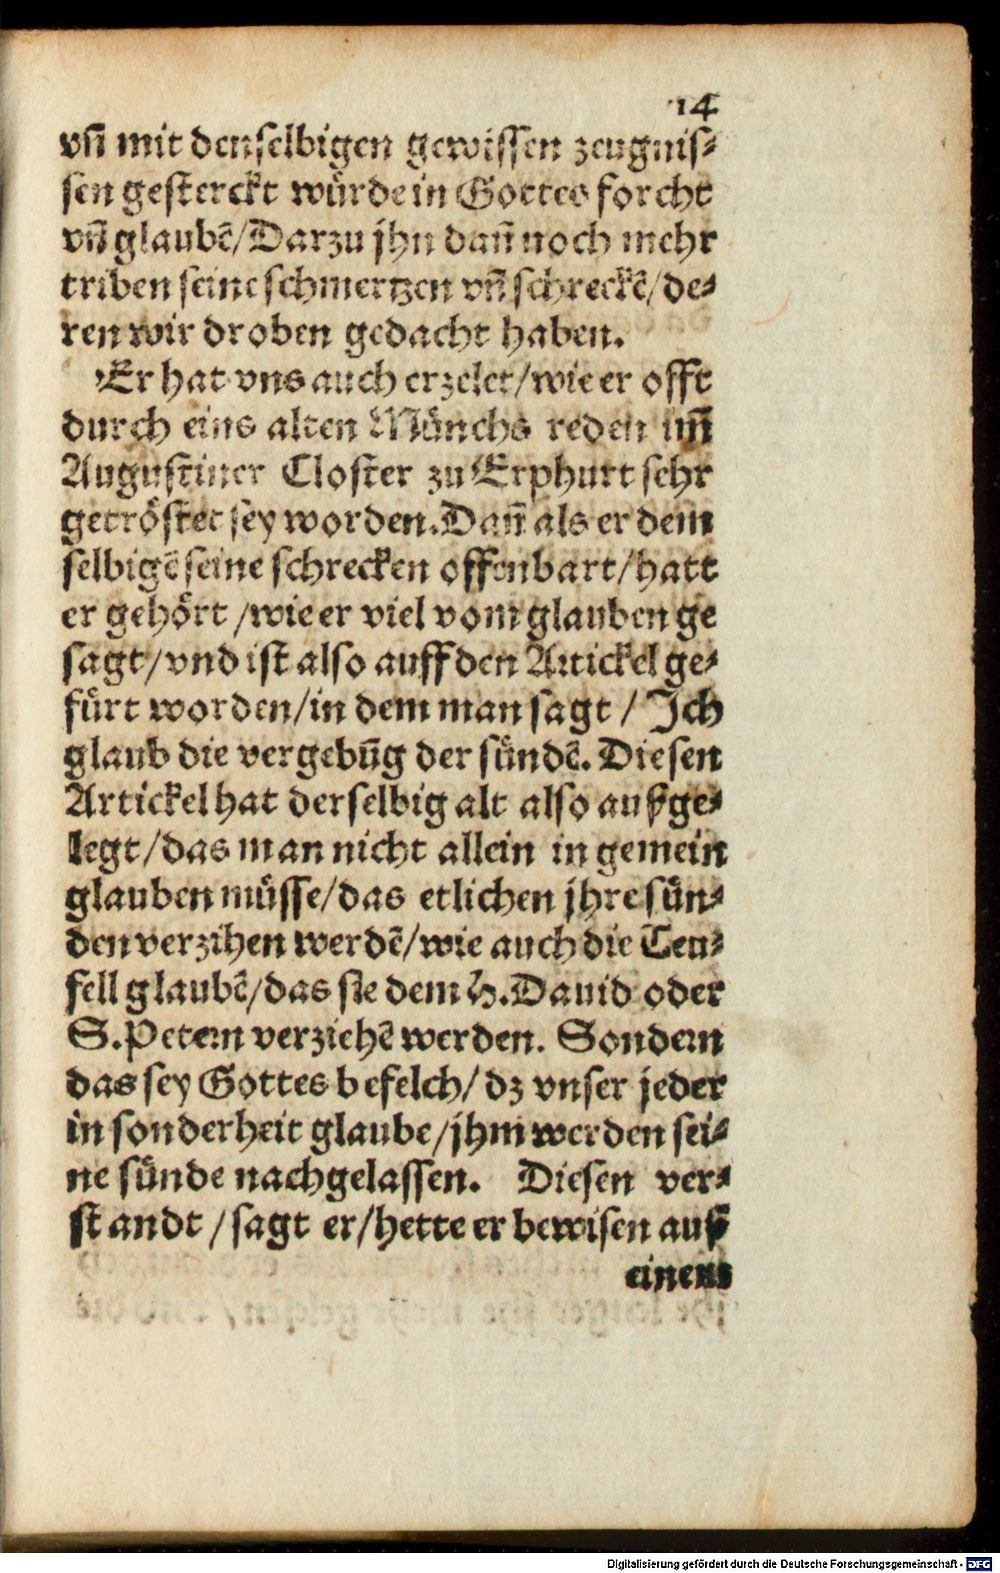 14
vñ mit denselbigen gewissen zeugnis⸗
sen gesterckt würde in Gottes forcht
vñ glaubẽ/Darzu jhn dañ noch mehr
triben seine schmertzen vñ schreckẽ/de⸗
ren wir droben gedacht haben.
Er hat vns auch erzelet/wie er offt
durch eins alten Münchs reden im̃
Augustiner Closter zu Erphurt sehr
getröstet sey worden. Dañ als er dem
selbigẽ seine schrecken offenbart/hatt
er gehört /wie er viel vom glauben ge
sagt/vnd ist also auff den Artickel ge⸗
fürt worden/in dem man sagt / Ich
glaub die vergebũg der sündẽ. Diesen
Artickel hat derselbig alt also außge⸗
legt/das man nicht allein in gemein
glauben müsse/das etlichen jhre sün⸗
den verzihen werdẽ/wie auch die Teu⸗
fell glaubẽ/das sie dem H. Dauid oder
S. Petern verziehẽ werden. Sondern
das sey Gottes befelch/ dz vnser jeder
in sonderheit glaube/jhm werden sei⸗
ne sünde nachgelassen. Diesen ver⸗
standt /sagt er/hette er bewisen auß
einem
Digitalisierung gefördert durch die Deutsche Forschungsgemeinschaft - DFG